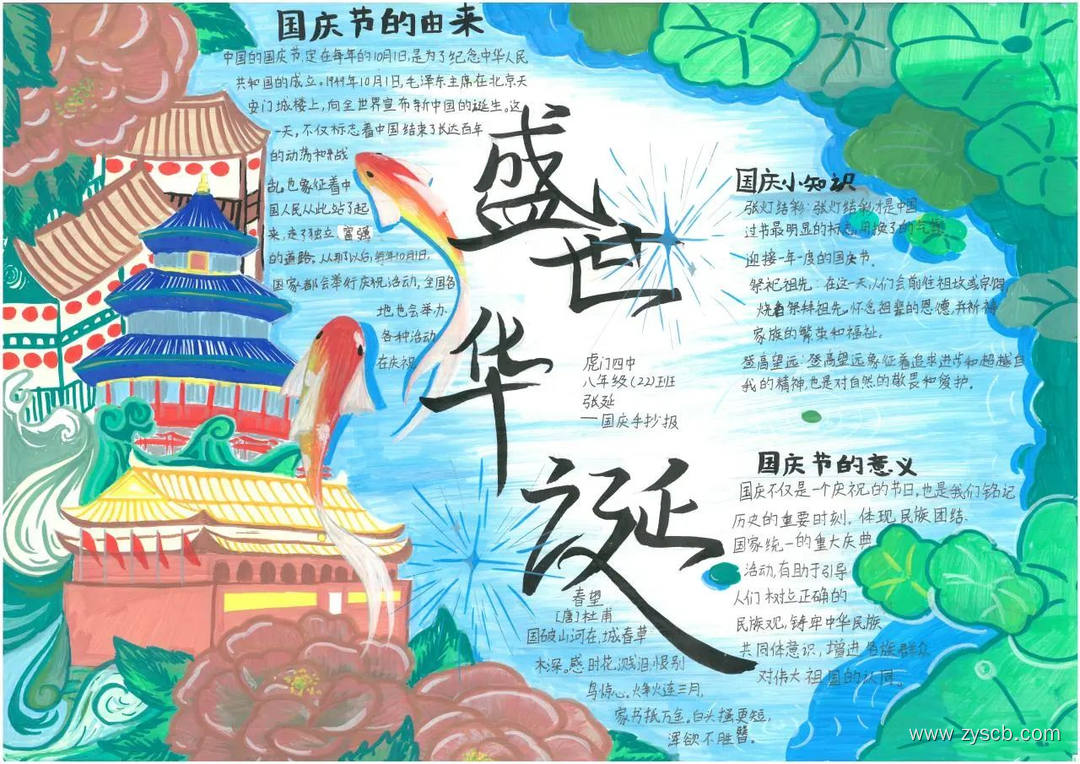 国庆节的由来
中国的国庆节,定在每年的10月1日,是为了纪念中华人民
共和国的成立。1949年10月1日,毛泽东主席在北京天
安门城楼上,向全世界宣布新中国的诞生。这
一天,不仅标志着中国结束了长达百年
的动荡和战
乱,也象征着中
国人民从此站了起
来,走了独立 富强
的道路。从那了以后,每年10月1日,
国家都会举行庆祝活动,全国各
地也会举办
各种活动
在庆祝
盛世华诞
虎门四中
八年级(22)班
张延
一国庆手抄报
国庆小知识
张灯结彩:张灯结彩才是中国
过节最明显的标志,用
迎接一年一度的国庆节。
祭祀祖先:在这一天,人们会前往祖坟或
烧着祭拜祖先,怀念祖辈的恩德,并祈祷
家族的繁荣和福祉。
登高望远:登高望远象征着追求进步和超越自
我的精神也是对自然的敬畏和爱护。
国庆节的意义
国庆不仅是一个庆祝的节日,也是我们铭记
历史的重要时刻。体现民族团结、
国家统一的重大庆典
活动,有助于引导
人们树立正确的
民族观,铸牢中华民族
共同体意识,增进各族群众
对伟大祖国的认同。
春望
[唐]杜甫
国破山河在,城春草
木深。感时花溅泪,恨别
鸟惊心。烽火连三月,
家书抵万金。白头搔更短,
浑欲不胜簪。
www.zyscb.com